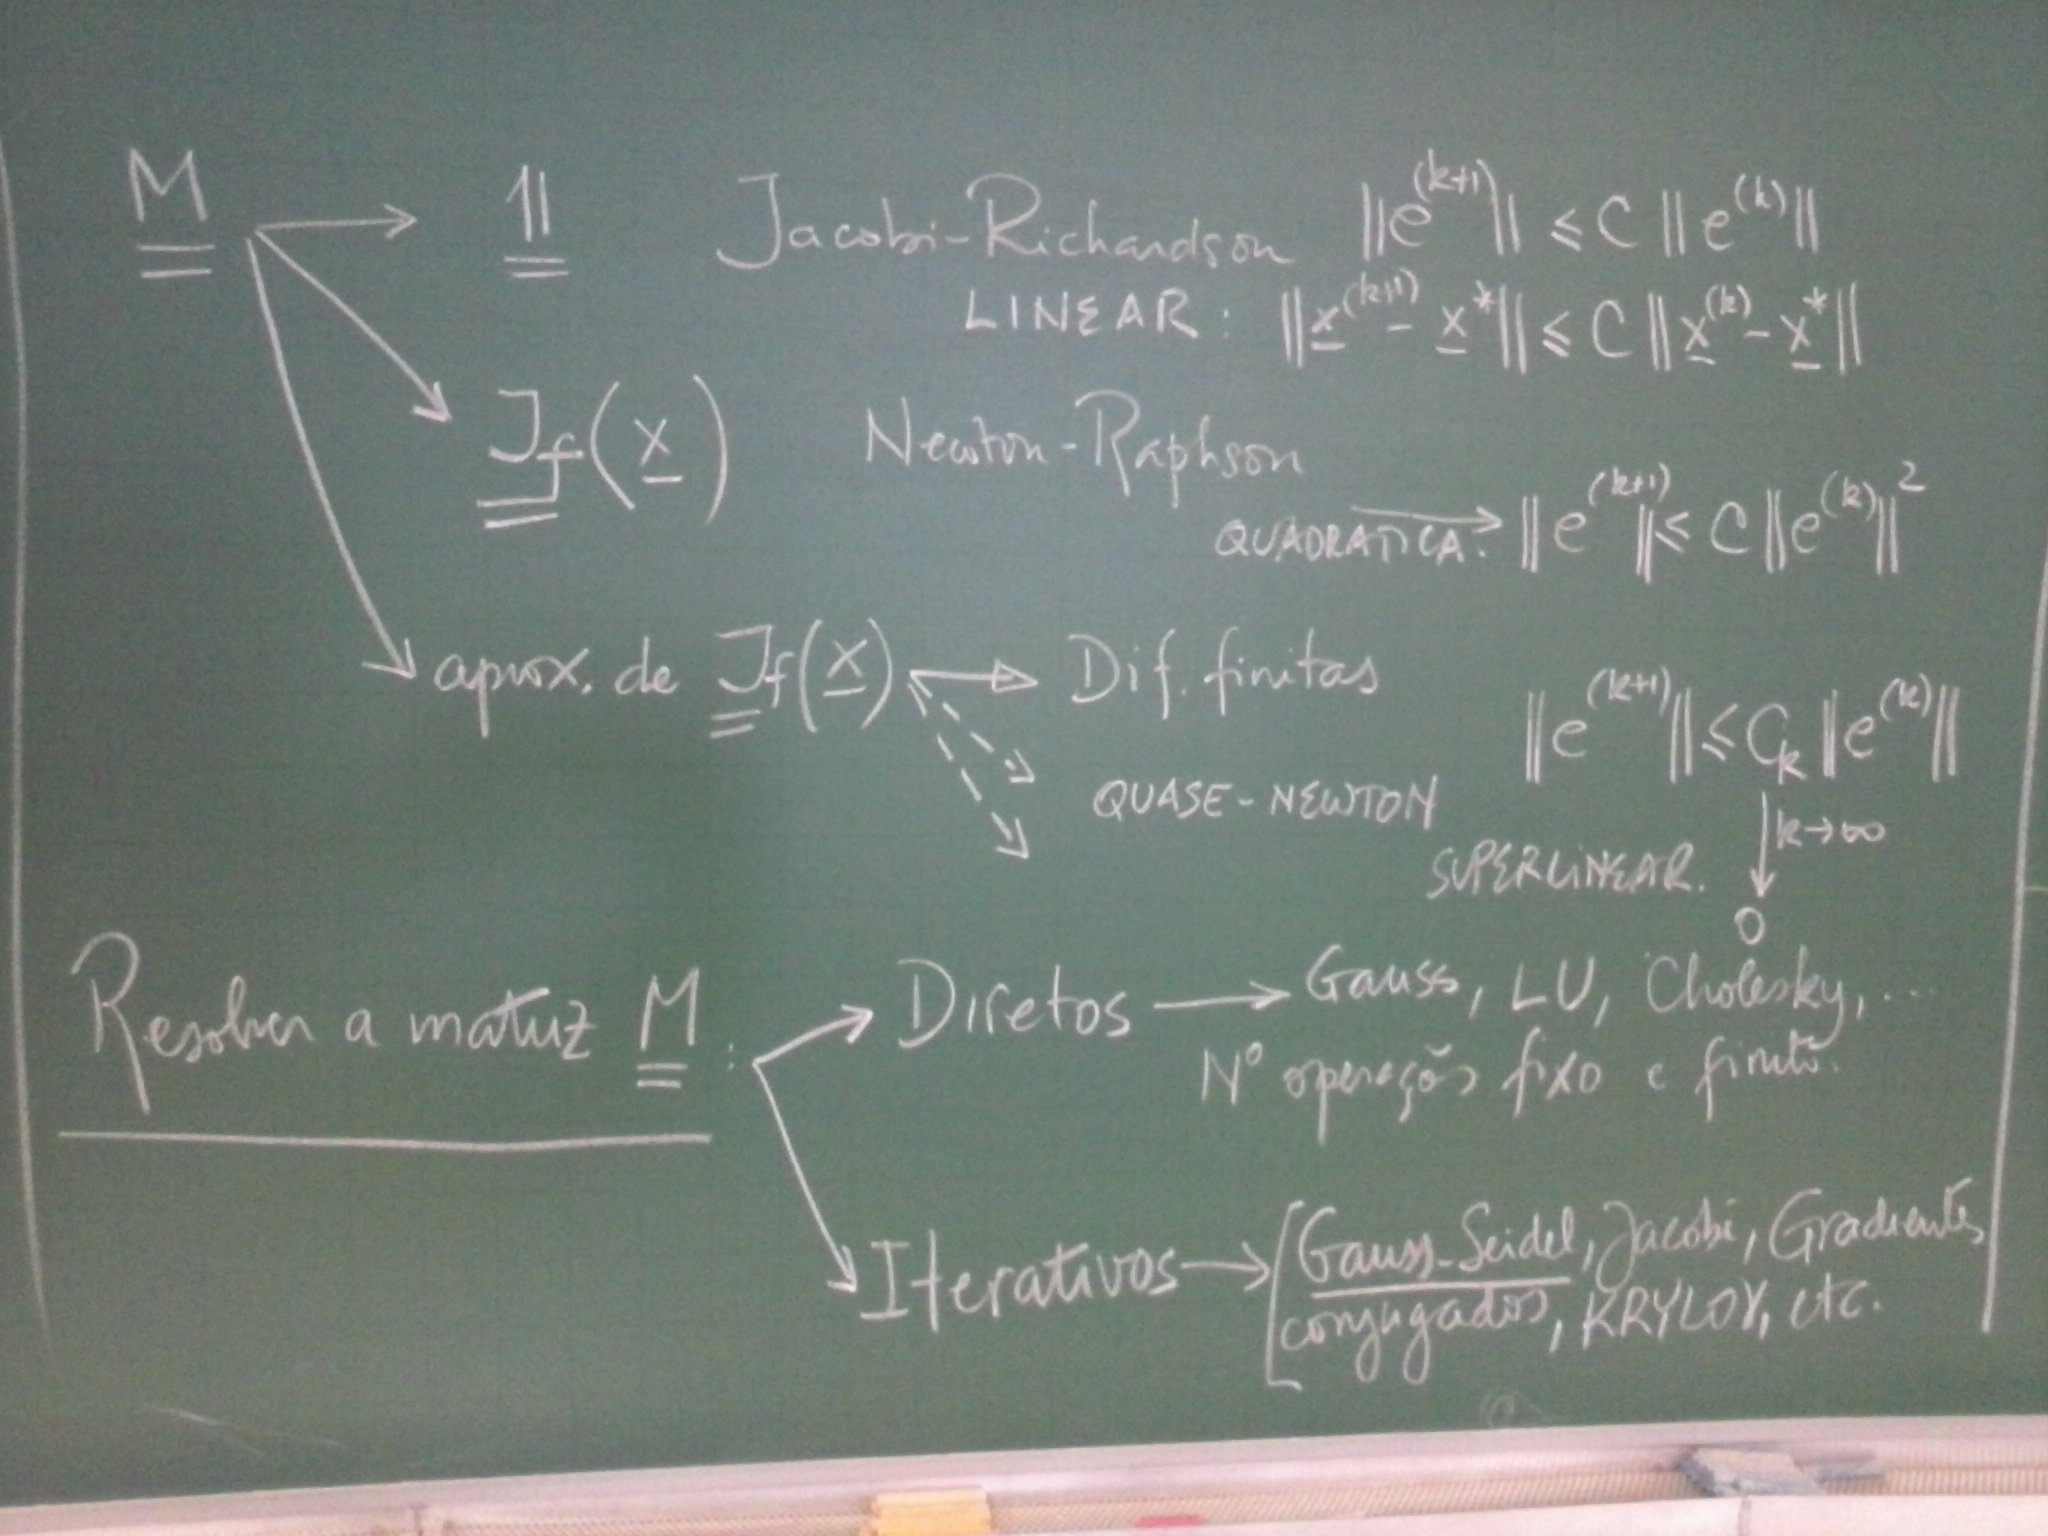 M → 1 Jacobi-Richardson ‖e^(k+1)‖ ≤ C ‖e^(k)‖
LINEAR: ‖x^(k+1) - x*‖ ≤ C ‖x^(k) - x*‖
J_f(x) Newton-Raphson
QUADRATICA: → ‖e^(k+1)‖ ≤ C ‖e^(k)‖²
aprox. de J_f(x) → Dif. finitas
‖e^(k+1)‖ ≤ C_k ‖e^(k)‖
QUASE-NEWTON
↓ k→∞
SUPERLINEAR.
0
Resolver a matriz M: Diretos → Gauss, LU, Cholesky, ...
Nº operações fixo e finito.
Iterativos → [Gauss-Seidel, Jacobi, Gradientes
conjugados, KRYLOV, etc.